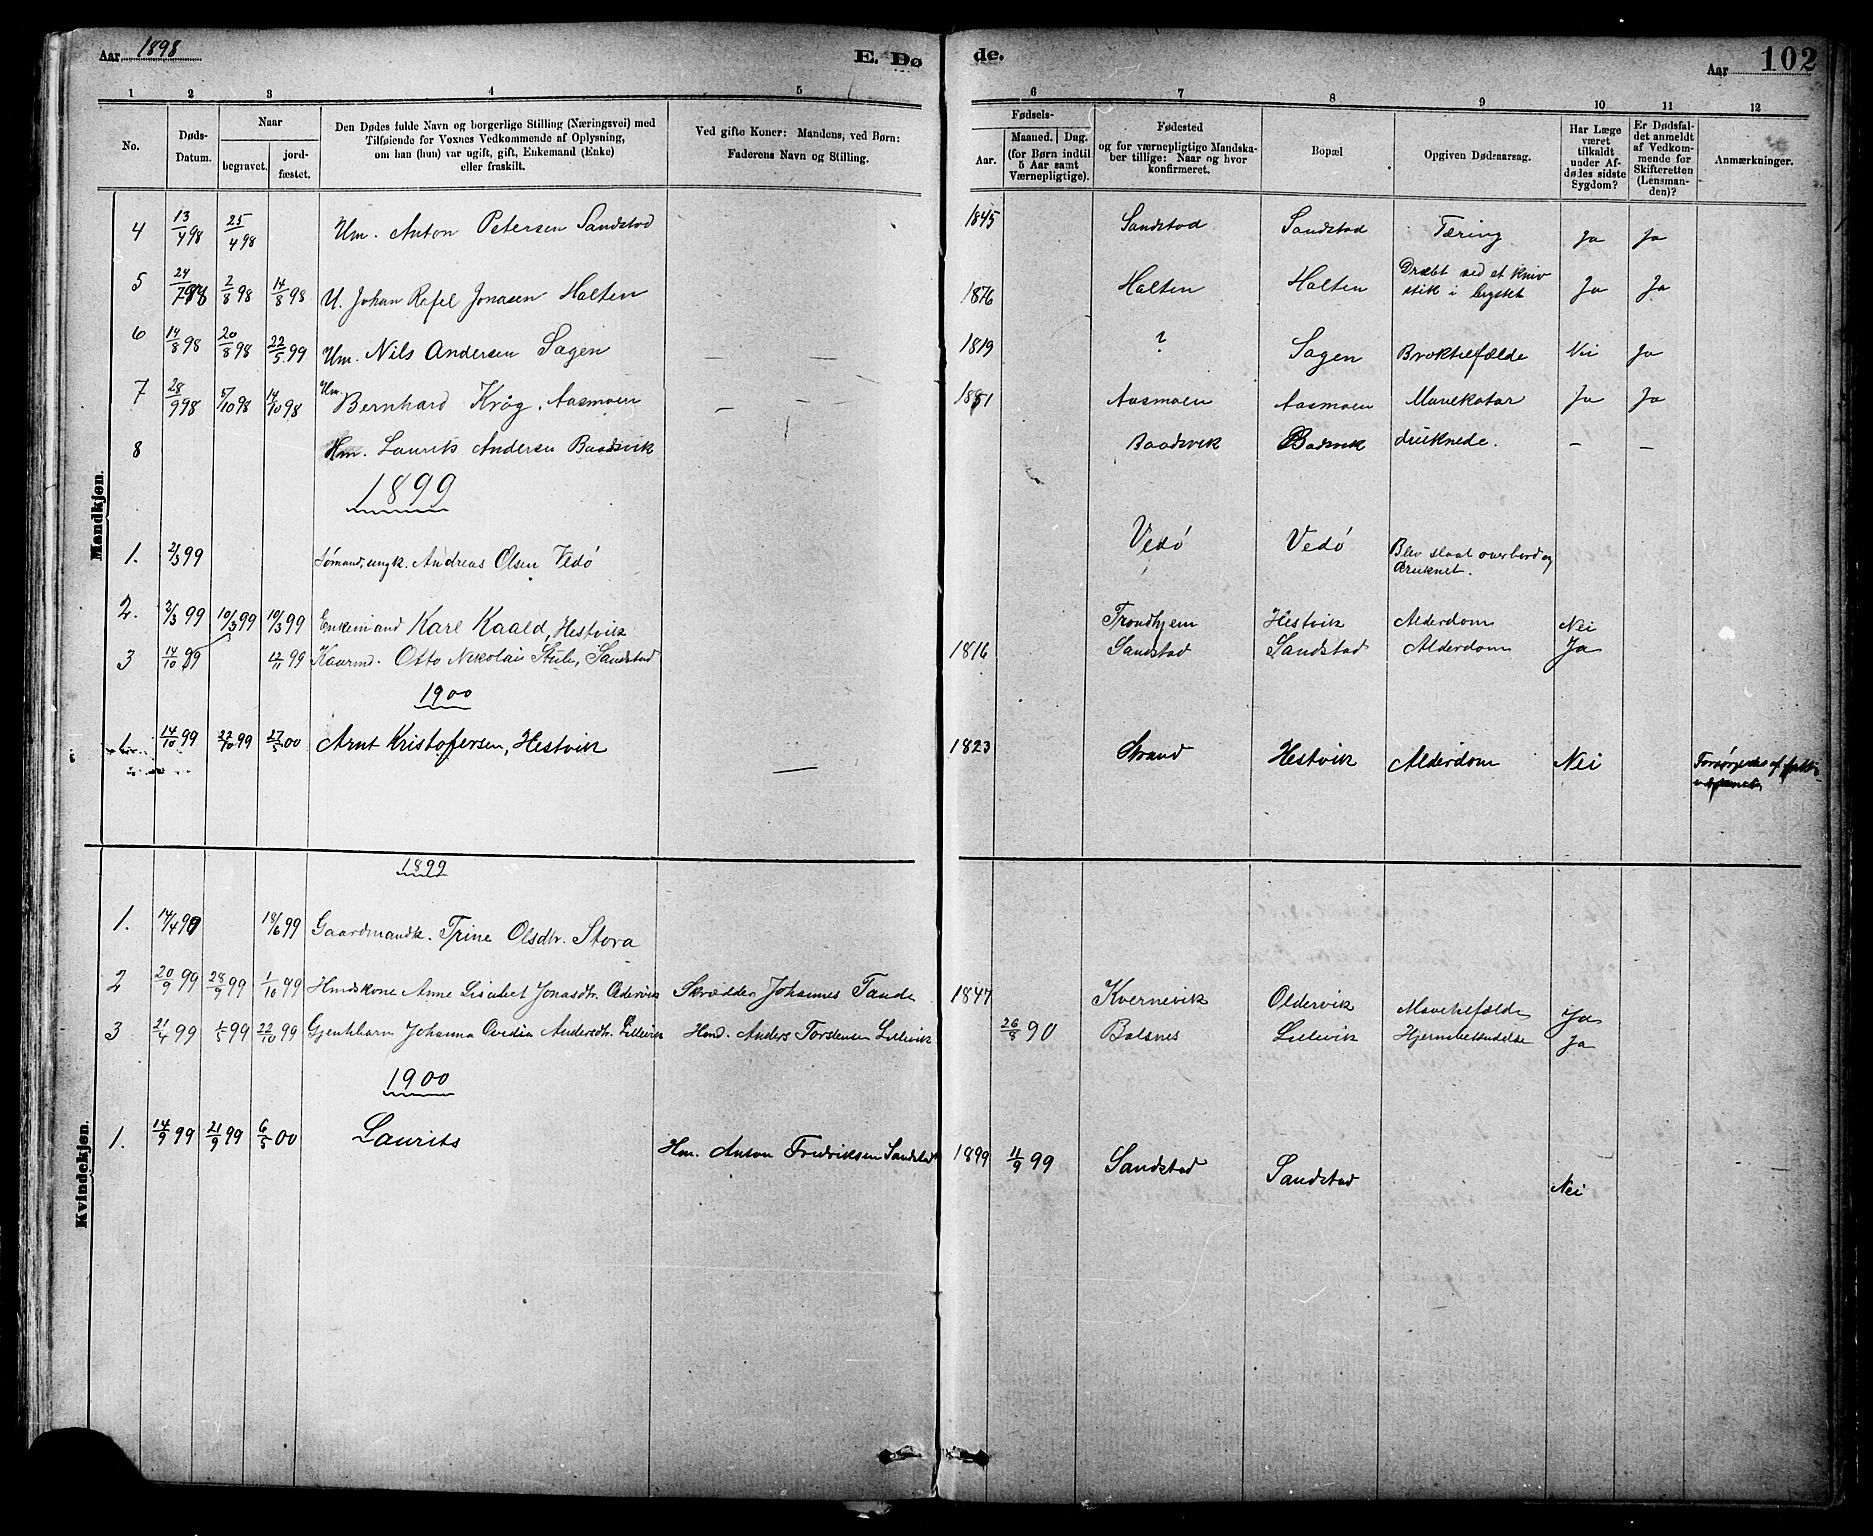 Aar 1898 E. Dø de. Aar 102
1 2 3 4 5 6 7 8 9 10 11 12
No.
Døds-
Datum.
Naar
begravet. jord-
fæstet.
Den Dødes fulde Navn og borgerlige Stilling (Næringsvei) med
Tilføiende for Voxnes Vedkommende af Oplysning,
om han (hun) var ugift, gift, Enkemand (Enke)
eller fraskilt.
Ved gifte Koner: Mandens, ved Børn:
Faderens Navn og Stilling.
Fødsels-
Aar.
Maaned. Dag.
(for Børn indtil
5 Aar samt
Værnepligtige).
Fødested
og for værnepligtige Mandska-
ber tillige: Naar og hvor
konfirmeret.
Bopæl
Opgiven Dødsaarsag.
Har Læge
været
tilkaldt
under Af-
dødes sidste
Sygdom?
Er Dødsfal-
det anmeldt
af Vedkom-
mende for
Skifteretten
(Lensman-
den)?
Anmærkninger.
Mandkjøn.
4 13/4 98 25/4 98 Hm. Anton Petersen Sandstad 1845 Sandstad Sandstad Tæring Ja Ja
5 24/7 98 2/8 98 14/8 98 U. Johan Rafel Jonasen Halten 1876 Halten Halten Dræbt ved et kniv
stik i brystet Ja Ja
6 14/8 98 20/8 98 22/5 99 Hm. Nils Andersen Sagen — — 1819 ? Sagen Broktilfælde Nei Ja
7 28/9 98 5/10 98 14/10 98 Hm. Bernhard Krøg, Aasmoen — — 1851 Aasmoen Aasmoen Mavekatar Ja Ja
8 Hm. Laurits Andersen Baadsvik Baadsvik Badsvik druknede. — —
1899
1. 2/3 99 Sømand, ungk. Andreas Olsen Vedø Vedø Vedø Blev slaat overbord og
druknet.
2. 2/3 99 10/3 99 10/3 99 Enkemand Karl Kaald, Hestvik Trondhjem Hestvik Alderdom Nei
3 14/10 99 12/11 99 Kaarmd. Otto Nikolai Sandstad 1816 Sandstad Sandstad Alderdom Ja
1900
1. 14/10 99 22/10 99 27/5 00 Arnt Kristofersen, Hestvik — 1823 Strand Hestvik Alderdom Nei Forsørgedes af
1899
1. 14/4 99 18/6 99 Gaardmandk. Trine Olsdtr. Stora
2 20/9 99 28/9 99 1/10 99 Husmdskone Anne Lisebet Jonasdtr. Oldervik Skrædder Johannes Tande 1847 Kvernevik Oldervik Mavetilfælde Ja
3 21/4 99 1/5 99 22/10 99 Gjentebarn Johanna Ovedia Andersdtr. Lillevik Hmd. Anders Torstensen Lillevik 26/8 90 Balsnes Lillevik Hjernebetændelse Ja
1900
Kvindekjøn.
1. 14/9 99 21/9 99 6/5 00 Laurits Hm. Anton Fredriksen Sandstad 1899 11/9 99 Sandstad Sandstad Nei